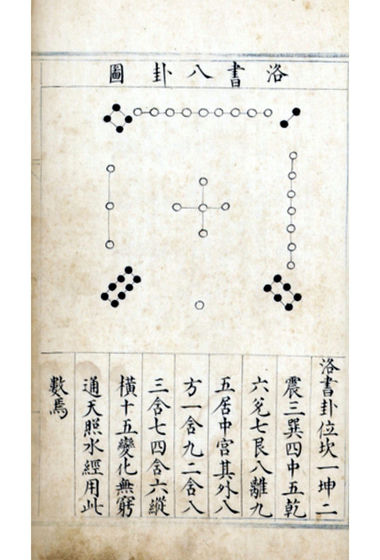 洛書八卦圖
洛書卦位坎一坤二
震三巽四中五乾
六兌七艮八離九
五居中宮其外八
方一含九二含八
三含七四含六縱
橫十五變化無窮
通天照水經用此
數焉